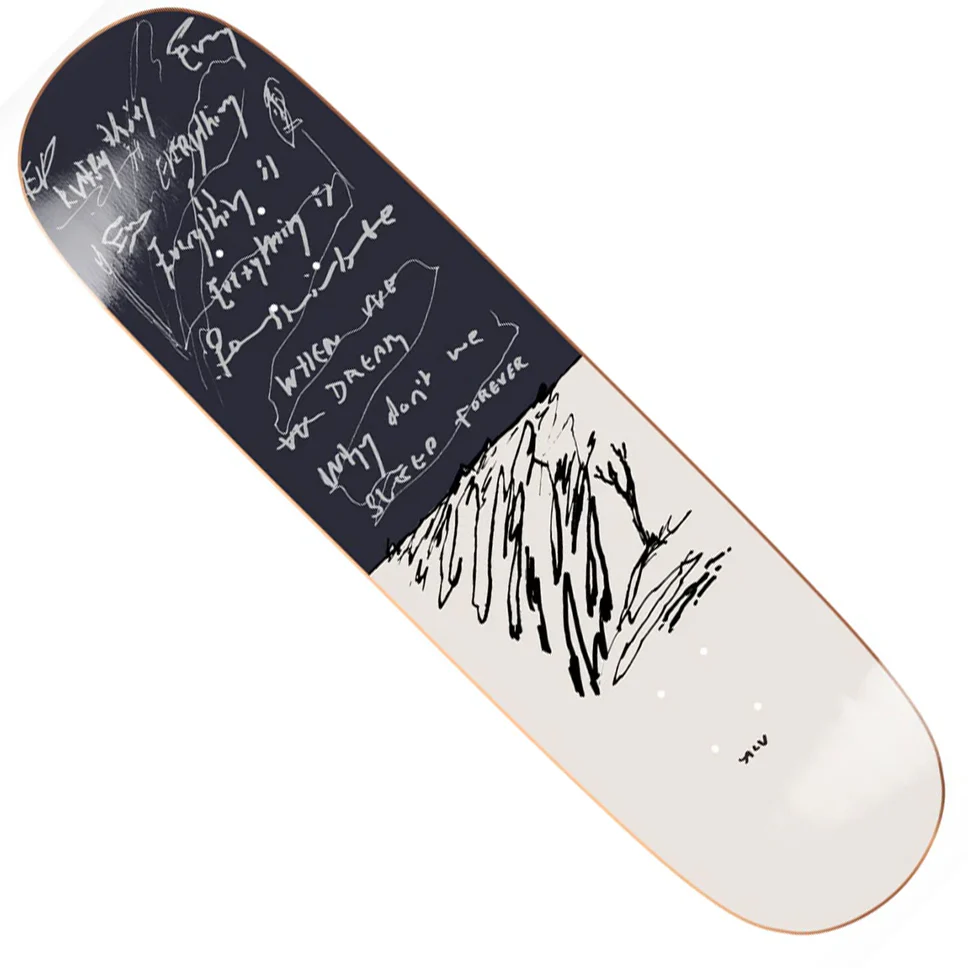 Every
Everything
EVERYthing
is
EV
Every
Everything is
Everything is
WHEN WE
DREAM
Why don't we
SLEEP FOREVER